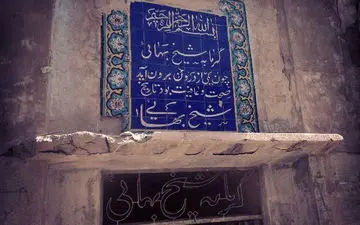 بسم الله الرحمن الرحیم
گرمابه شیخ بهائی
صحت و عافیت بود تاریخ
شیخ بهائی
گرمابه شیخ بهائی